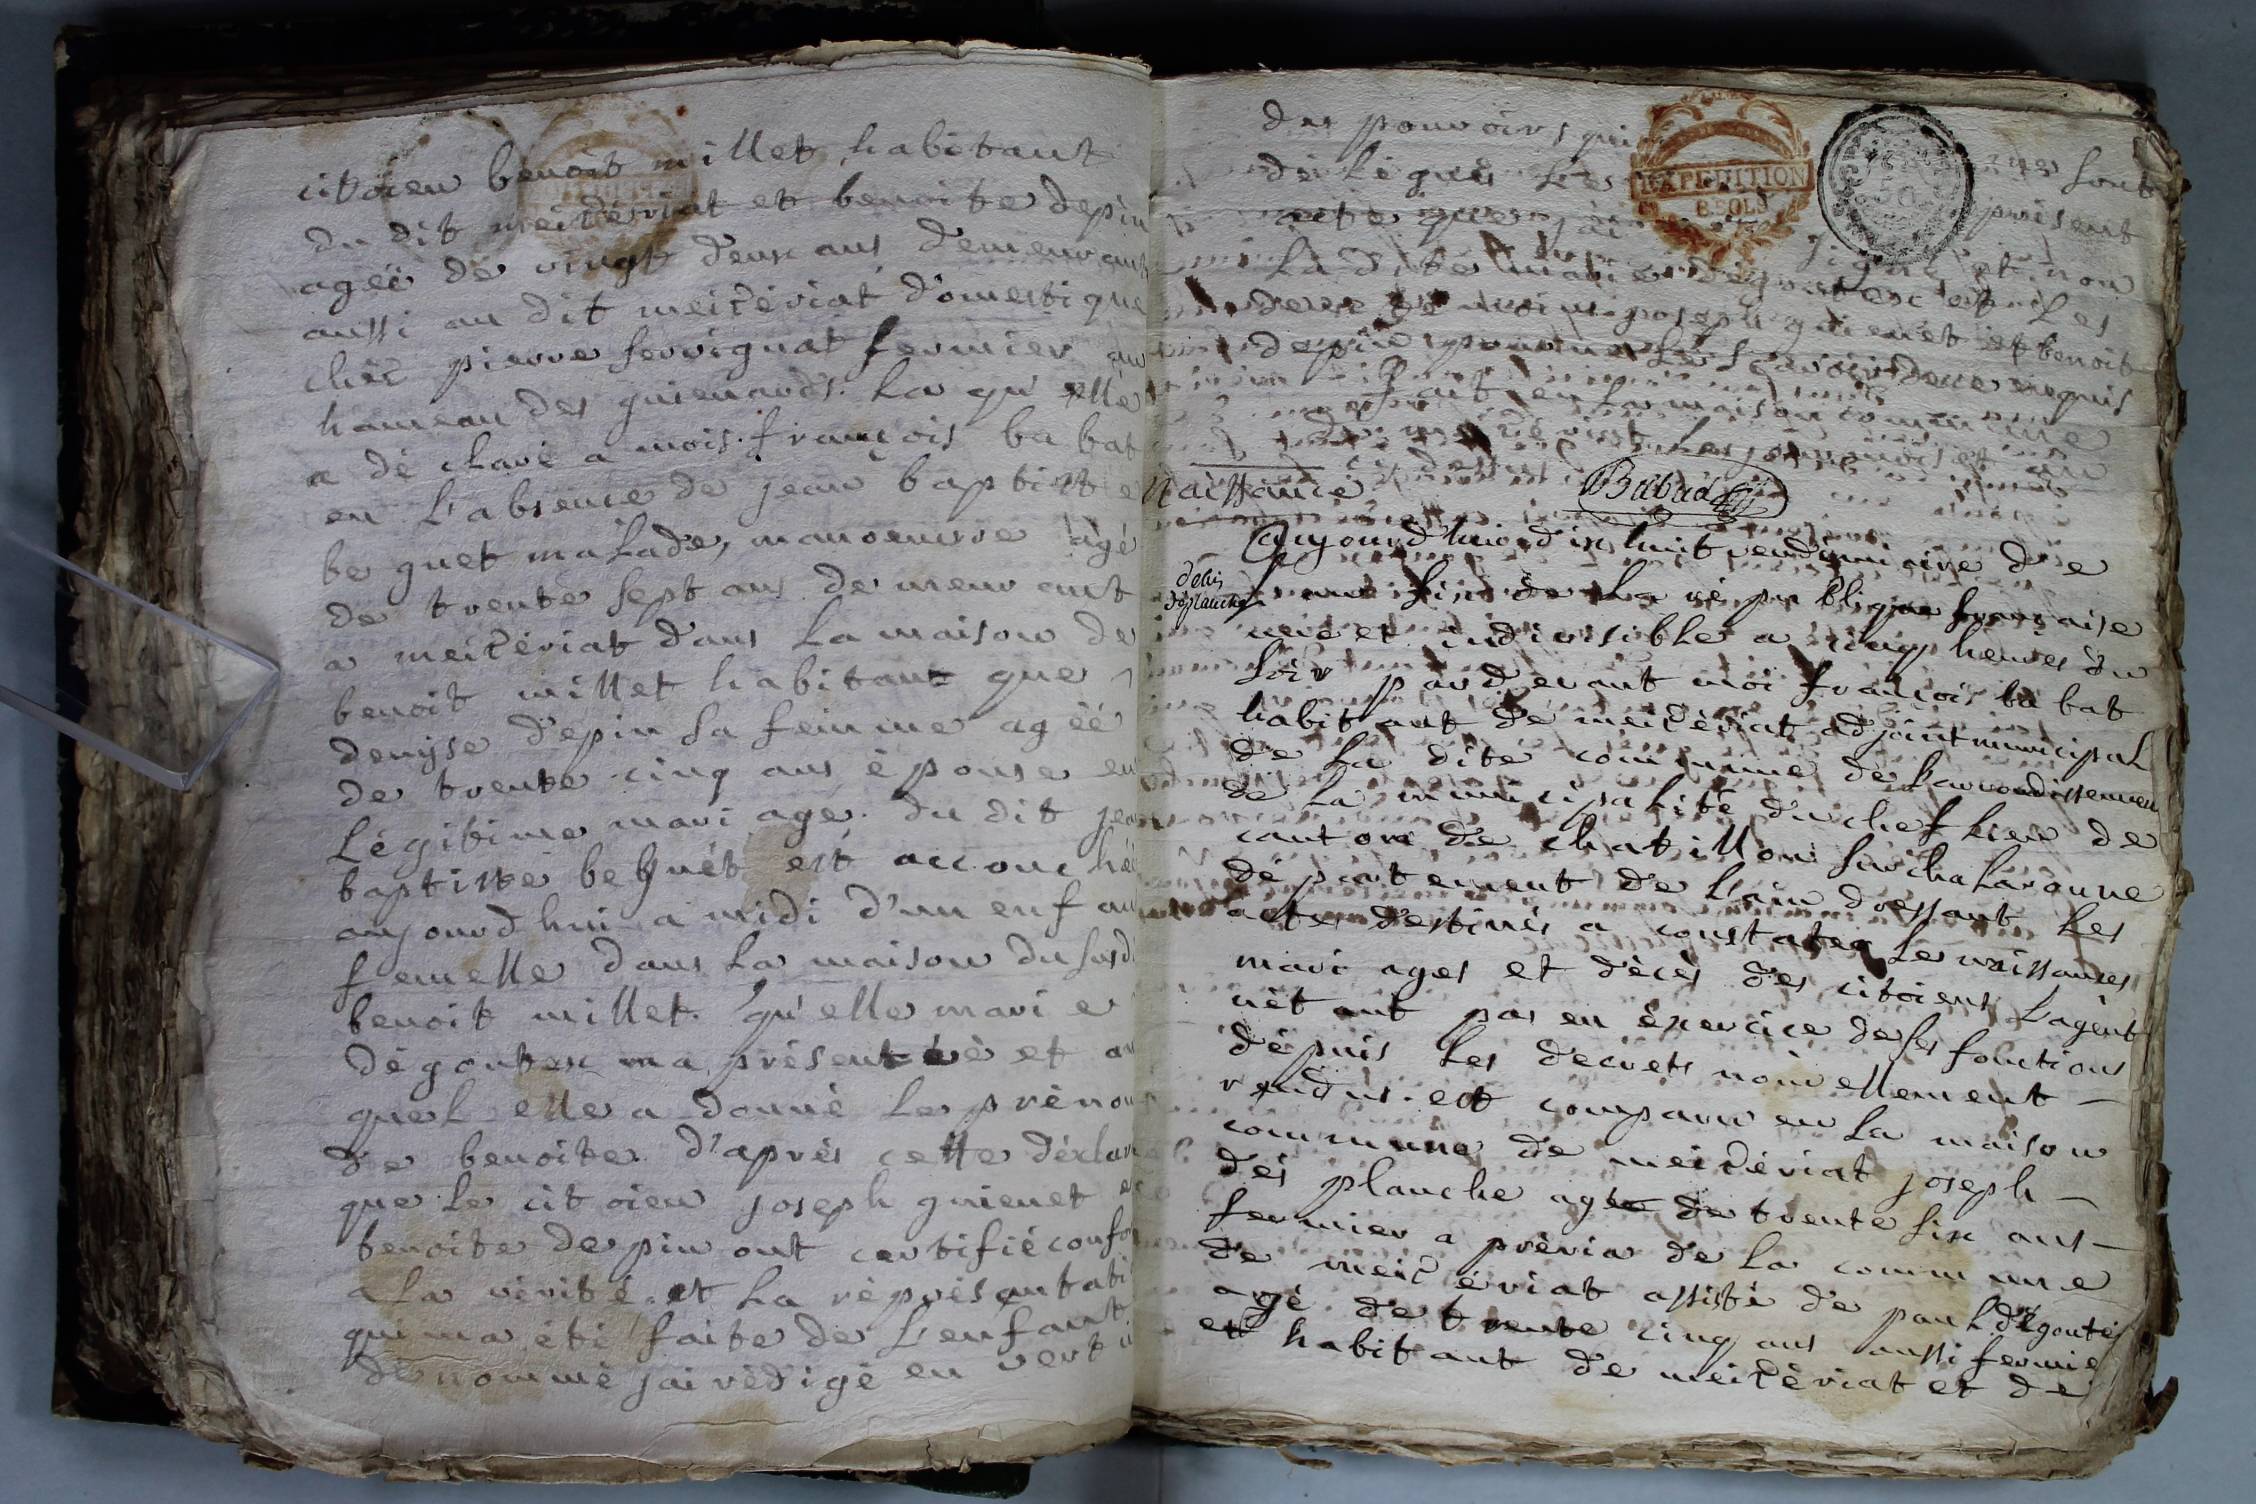 citoien benoit millet habitant
du dit meizériat et benoite depin
ageé de vingt deux ans demeurant
aussi au dit meizériat domestique
chéz pierre servignat fermier au
hameau des guienards. La qu'elle
a dé claré a mois françois babat
en L'absence de jean baptiste
be guet malade, manoeuvre agé
de trente sept ans demeurant
a meizériat dans La maison de
benoit millet habitant que
denyse depin sa femme ageé
de trente cinq ans épouse en
Légitime mari age du dit jean
baptiste beguét est accouchée
aujourdhui a midi d'un enfan
femelle dans La maison du susdi
benoit millet. qu'elle mari e
dégoutex ma présentéé et au
quel elle a donné Le prénom
de benoite. d'aprés cette déclara
que le citoien joseph guienet et
benoite depin ont certifié confor
a La vérité et La représentati
qui ma été faite de L'enfant
dénommé jai rédigé en vert u
des pouvoirs qui me sont
délégués Les présent
acte que jài signé et non
La dite marie dégoutex et Les
joseph guienet et benoit
depin pour ne Le scavoir de ce requis
fait en La maison commune
de meizériat Les jour mois et an
ci dessus
Babad
Naissance
de Cis
déplanche
aujourd'hui dix huit vendemiaire de
L'an six de La république française
une et indivisible a cinq heures du
soir par devant moi françois ba bat
habitant de meizériat adjoint municipal
de La dite commune de L'arrondissemen
de La municipalité du chef Lieu de
canton de chatillon sur chalaronne
département de L'ain dressant Les
actes destinés a constater Les naissances
mari ages et décés des citoiens L'agent
nét ant pas en éxercice de ses fonctions
dépuis Les décrets nouvellement
rendus. est comparu en La maison
commune de meizériat joseph
dés planche agée de trente six ans
fermier a préria de La commune
de meizériat assisté de paul dégoutés
agé de trente cinq ans aussi fermie
et habitant de meizériat et de
EXPEDITION
8.SOLS